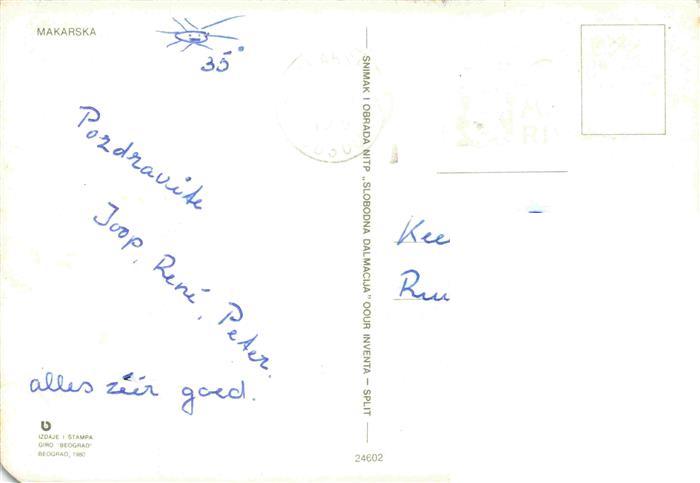 MAKARSKA
35°
Pozdravite
Joop, René, Peter.
alles zéér goed.
IZDAJE I ŠTAMPA
GIRO "BEOGRAD"
BEOGRAD, 1980
SNIMAK I OBRADA NITP „SLOBODNA DALMACIJA" OOUR INVENTA — SPLIT
24602
Kee